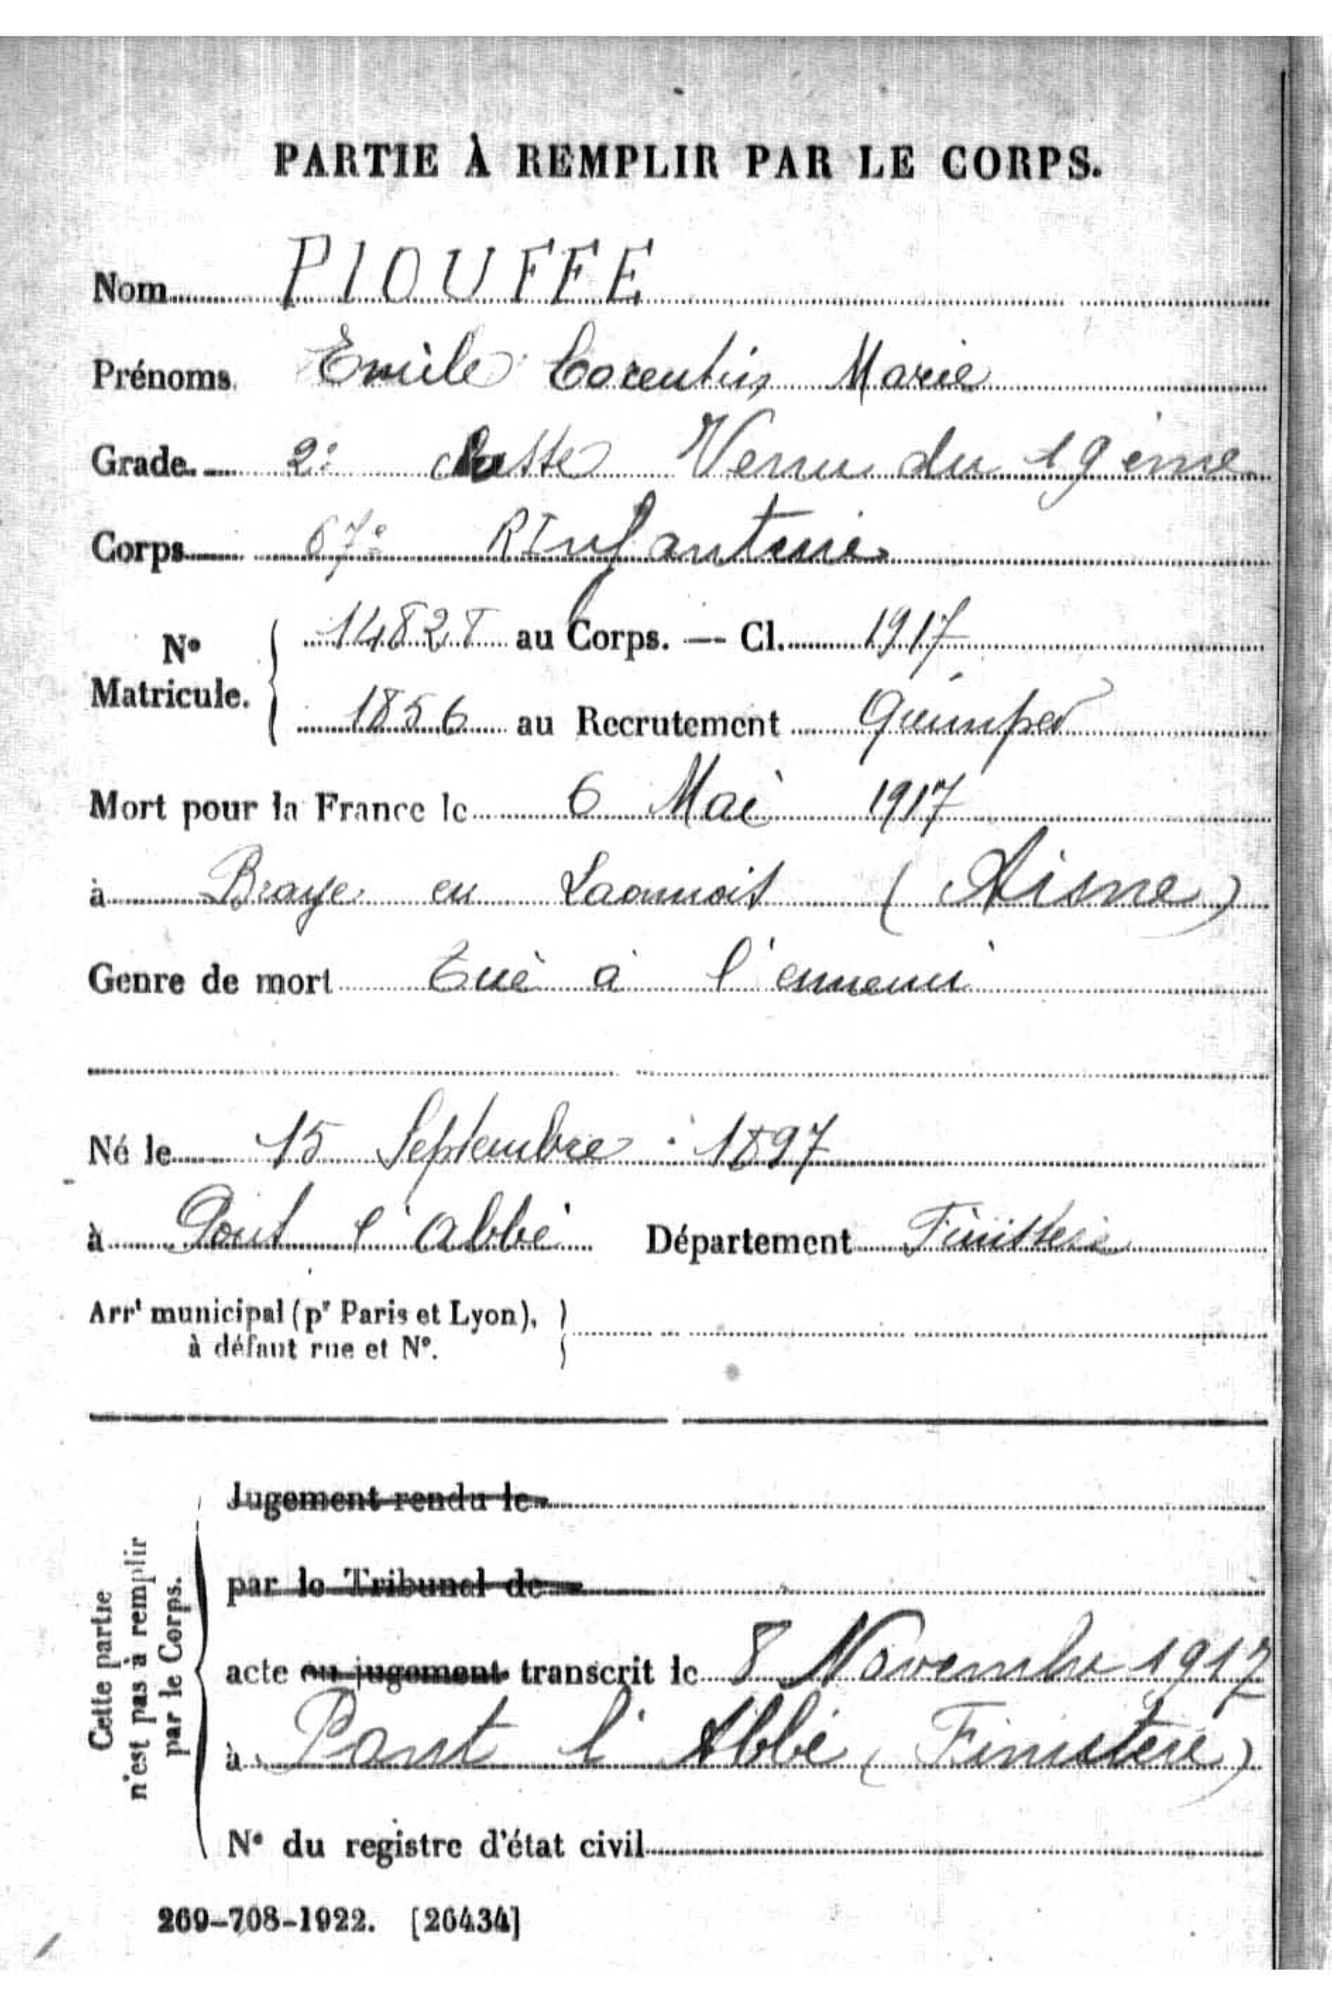 PARTIE À REMPLIR PAR LE CORPS.
Nom PIOUFFE
Prénoms Emile Corentin Marie
Grade 2e classe Venu du 19 ème
Corps 67e R Infanterie
No Matricule. 14828 au Corps. — Cl. 1917
1856 au Recrutement Quimper
Mort pour la France le 6 Mai 1917
à Braye en Laonnois (Aisne)
Genre de mort Tué à l'ennemi
Né le 15 Septembre 1897
à Pont l'Abbé Département Finistère
Arrt municipal (pr Paris et Lyon),
à défaut rue et No.
Cette partie n'est pas à remplir par le Corps.
Jugement rendu le
par le Tribunal de
acte ou jugement transcrit le 8 Novembre 1917
à Pont l'Abbé (Finistère)
No du registre d'état civil
269-708-1922. [26434]